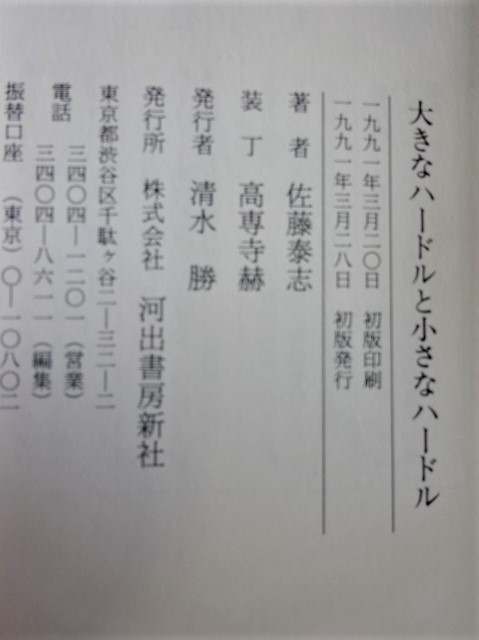 大きなハードルと小さなハードル
一九九一年三月二〇日　初版印刷
一九九一年三月二八日　初版発行
著　者　佐藤泰志
装　丁　高専寺赫
発行者　清水　勝
発行所　株式会社　河出書房新社
東京都渋谷区千駄ヶ谷二―三二―二
電話　三四〇四―一二〇一（営業）
三四〇四―八六一一（編集）
振替口座　（東京）〇―一〇八〇二